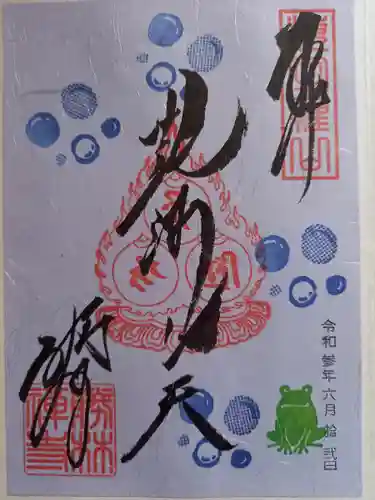 奉拝
毘沙門天
勝林寺
勝林禅寺
令和参年六月拾弐日